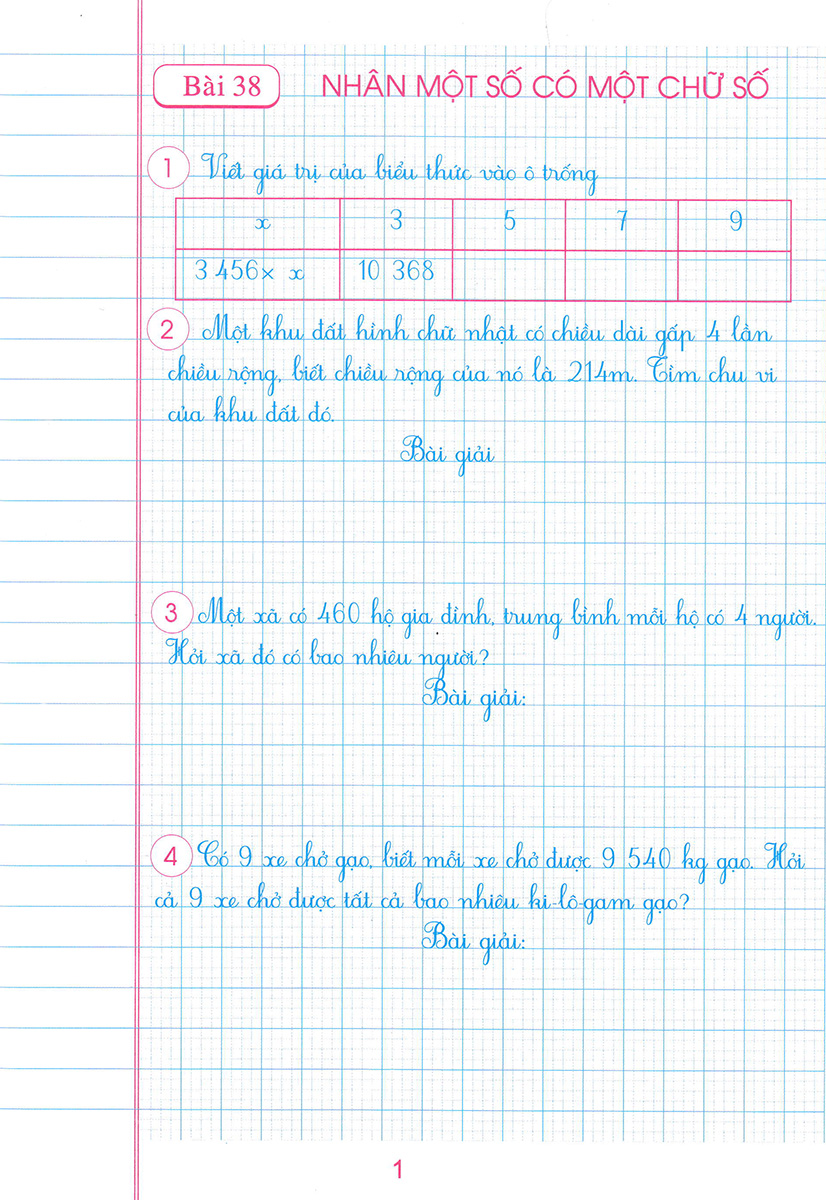 Bài 38
NHÂN MỘT SỐ CÓ MỘT CHỮ SỐ
1 Viết giá trị của biểu thức vào ô trống
x 3 5 7 9
3 456 × x 10 368
2 Một khu đất hình chữ nhật có chiều dài gấp 4 lần
chiều rộng, biết chiều rộng của nó là 214m. Tìm chu vi
của khu đất đó.
Bài giải
3 Một xã có 460 hộ gia đình, trung bình mỗi hộ có 4 người.
Hỏi xã đó có bao nhiêu người?
Bài giải:
4 Có 9 xe chở gạo, biết mỗi xe chở được 9 540 kg gạo. Hỏi
cả 9 xe chở được tất cả bao nhiêu ki-lô-gam gạo?
Bài giải:
1